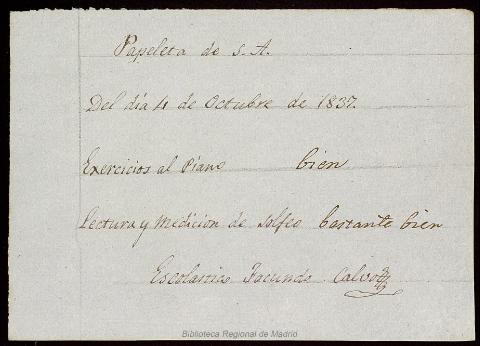 Papeleta de S. A.
Del día 4 de Octubre de 1837.
Exercicios al Piano bien
Lectura y Medicion de Solfeo bastante bien
Escolastico Facundo Calvo
Biblioteca Regional de Madrid